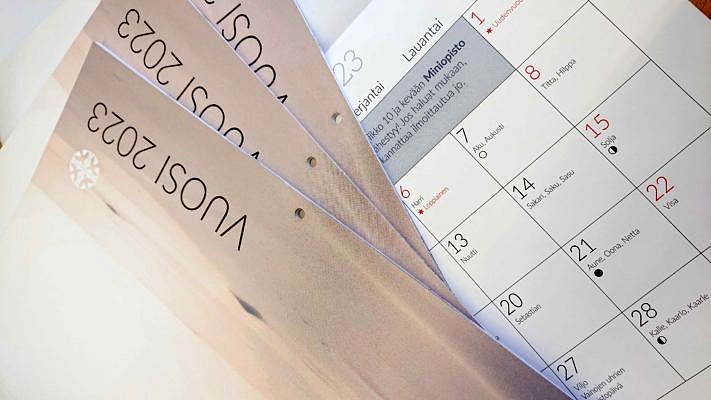 VUOSI 2023
VUOSI 2023
VUOSI
23
Lauantai
erjantai
1
Uudenvuod
ikko 10 ja kevään Miniopisto
ähestyy! Jos haluat mukaan,
kannattaa ilmoittautua jo.
8
Titta, Hilppa
7
Aku, Aukusti
15
Solja
6
Harri
Loppiainen
14
Sakari, Saku, Sasu
22
Visa
13
Nuutti
21
Aune, Oona, Netta
20
Sebastian
28
Kalle, Kaarlo, Kaarle
27
Viljo
Vainojen uhrien
istopäivä